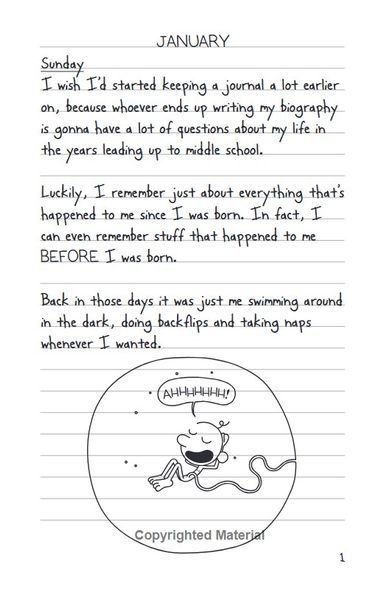 JANUARY
Sunday
I wish I'd started keeping a journal a lot earlier
on, because whoever ends up writing my biography
is gonna have a lot of questions about my life in
the years leading up to middle school.
Luckily, I remember just about everything that's
happened to me since I was born. In fact, I
can even remember stuff that happened to me
BEFORE I was born.
Back in those days it was just me swimming around
in the dark, doing backflips and taking naps
whenever I wanted.
AHHHHHHH!
Copyrighted Material
1